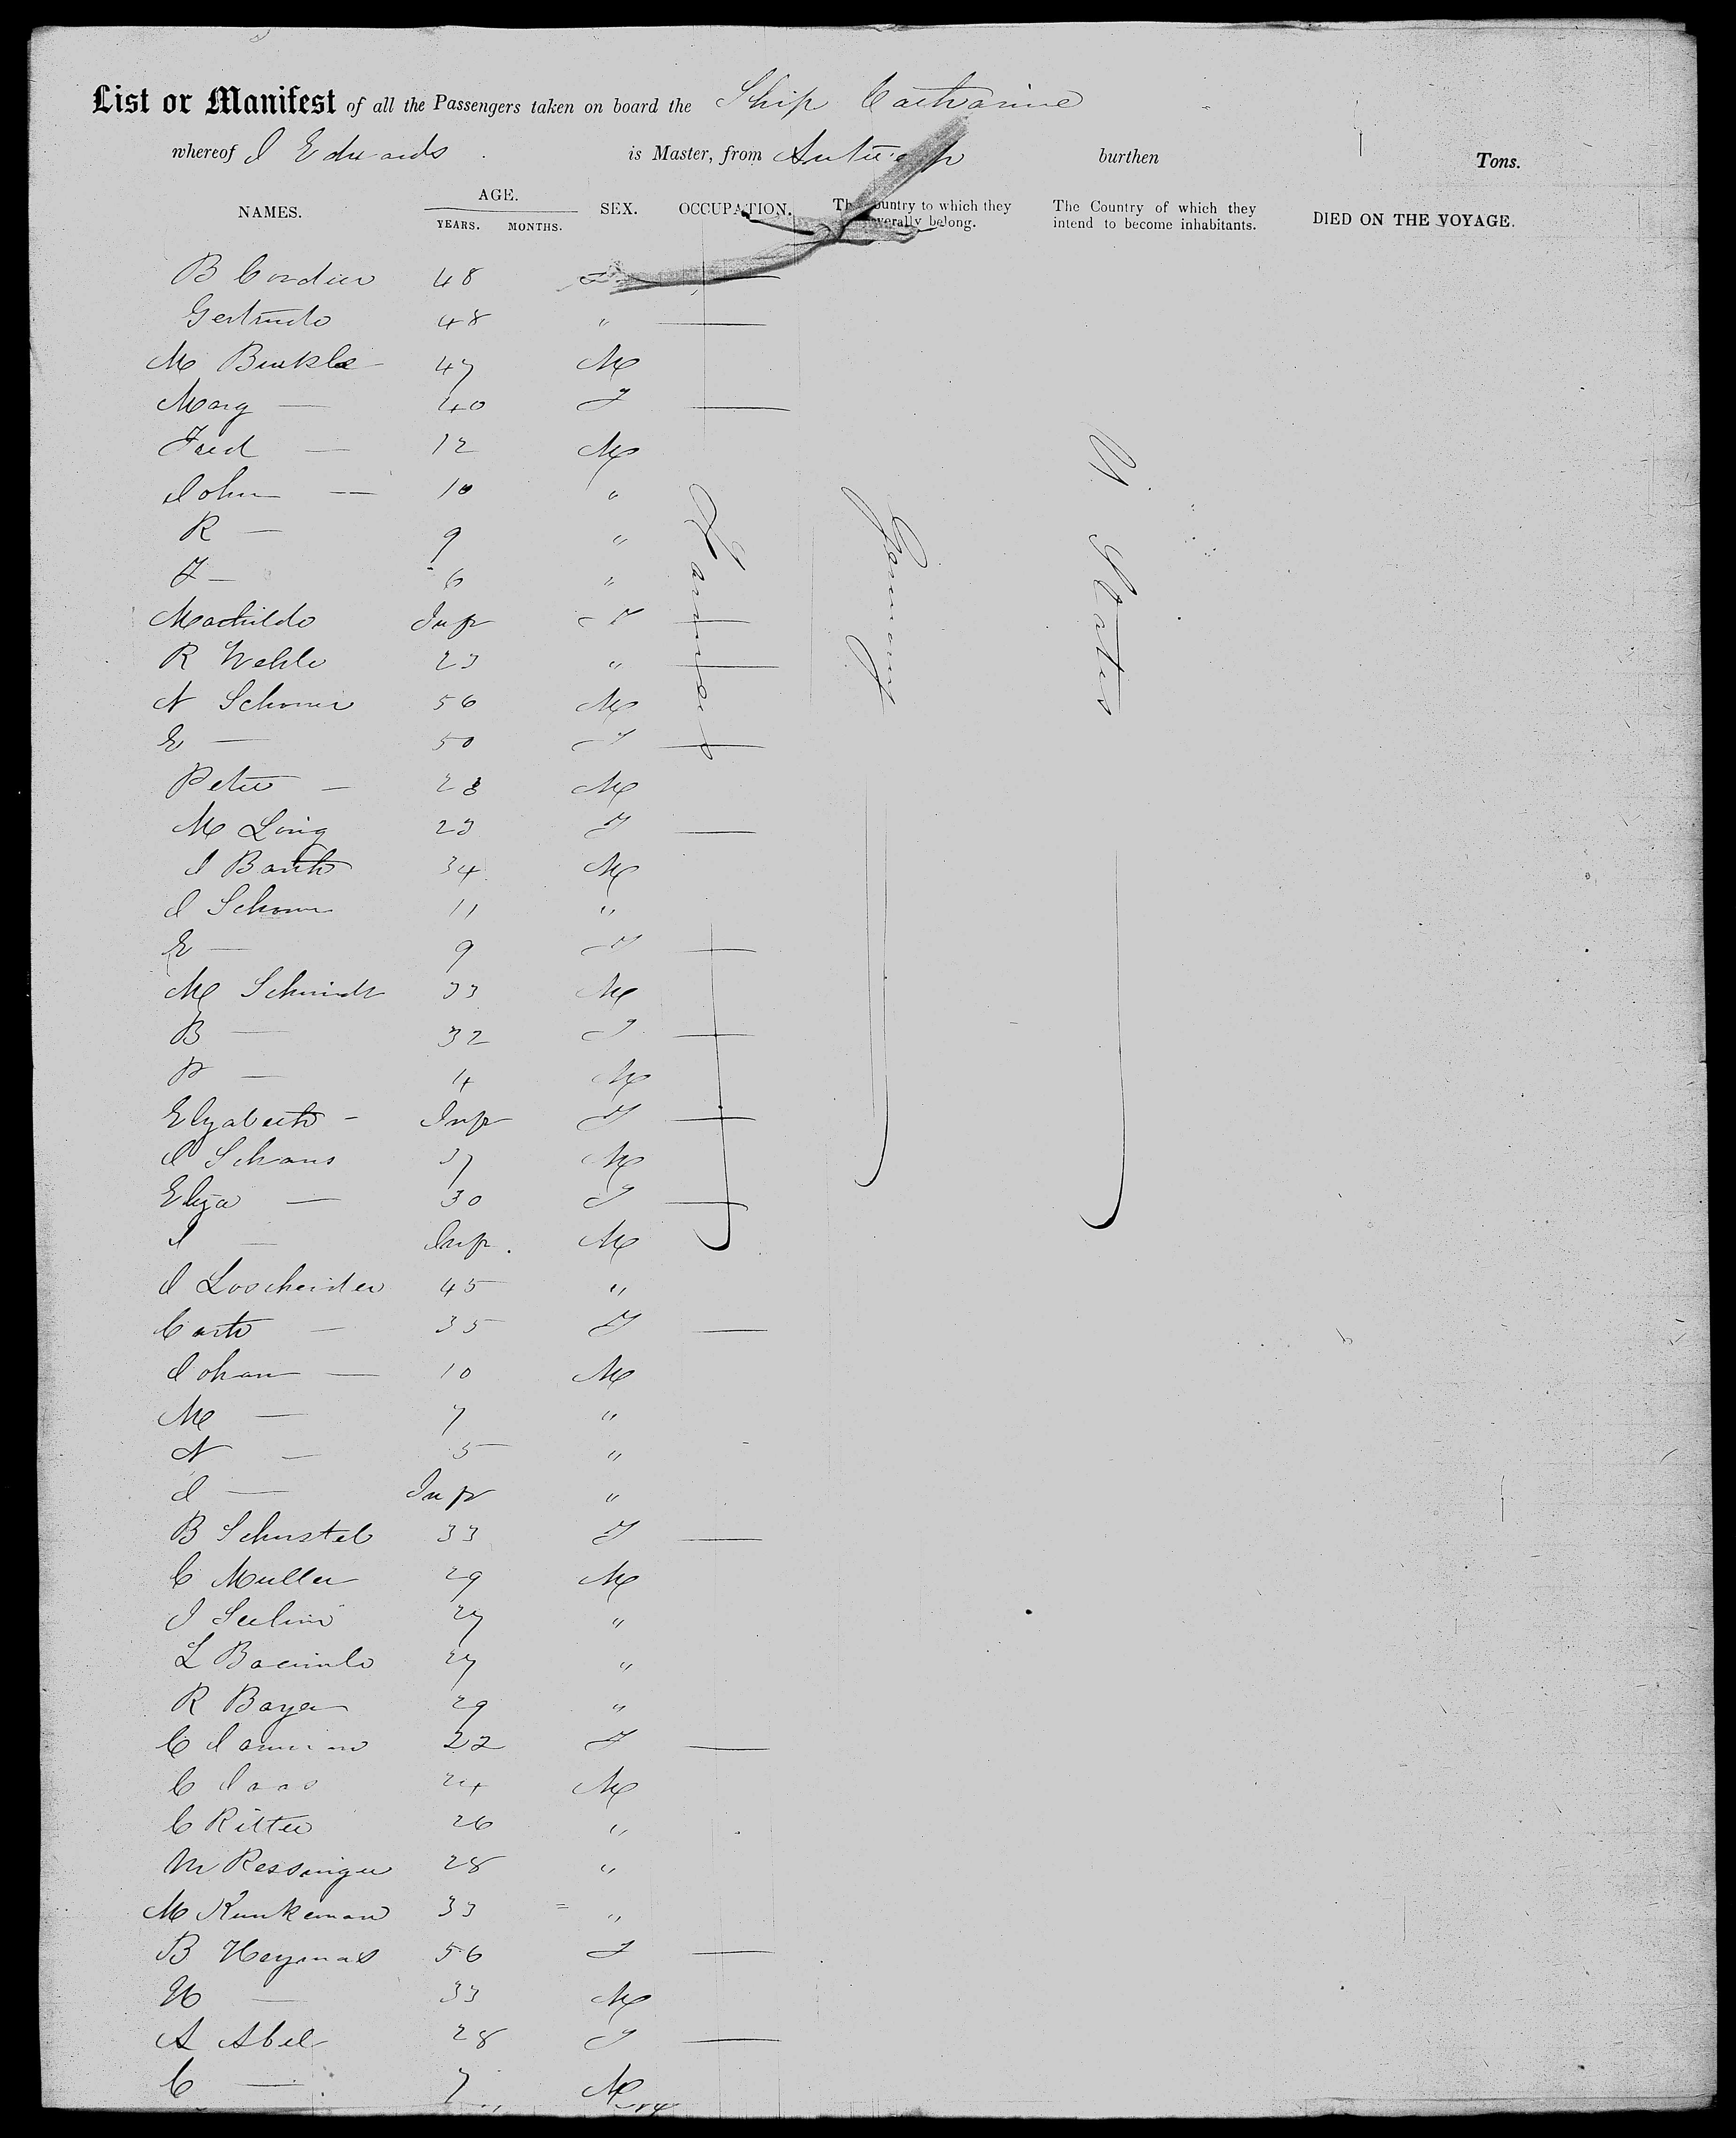 List or Manifest of all the Passengers taken on board the Ship Catharine
whereof J Edwards is Master, from Antwerp burthen Tons.
NAMES. AGE. YEARS. MONTHS. SEX. OCCUPATION. The Country to which they severally belong. The Country of which they intend to become inhabitants. DIED ON THE VOYAGE.
B Cordier 48 F —
Gertrude 48 " —
M 47 M
Marg — 40 F —
Fred — 12 M
John — 10 "
R — 9 "
F — 6 "
Mathilde Inf F —
R Wehle 23 " —
N 56 M
E — 50 F —
Peter — 28 M
M Long 23 F —
J Barth 34 M
J 11 "
E — 9 F —
M Schmidt 33 M
B — 32 F —
P — 4 M
Elizabeth — Inf F —
J Schaus 37 M
Eliza — 30 F —
J — Inf. M
J Loscheider 45 "
Cath — 35 F —
Johan — 10 M
M — 7 "
N — 5 "
J — Inf "
B Schustel 33 F —
C Muller 29 M
J 27 "
L 27 "
R Bayer 29 "
C 22 F —
C 24 M
C Ritter 26 "
M Ressinger 28 "
M Kunkeman 33 "
B Heymas 56 F —
H — 33 M
A Abel 28 F —
C — 7 M
Farmers
Germany
U States